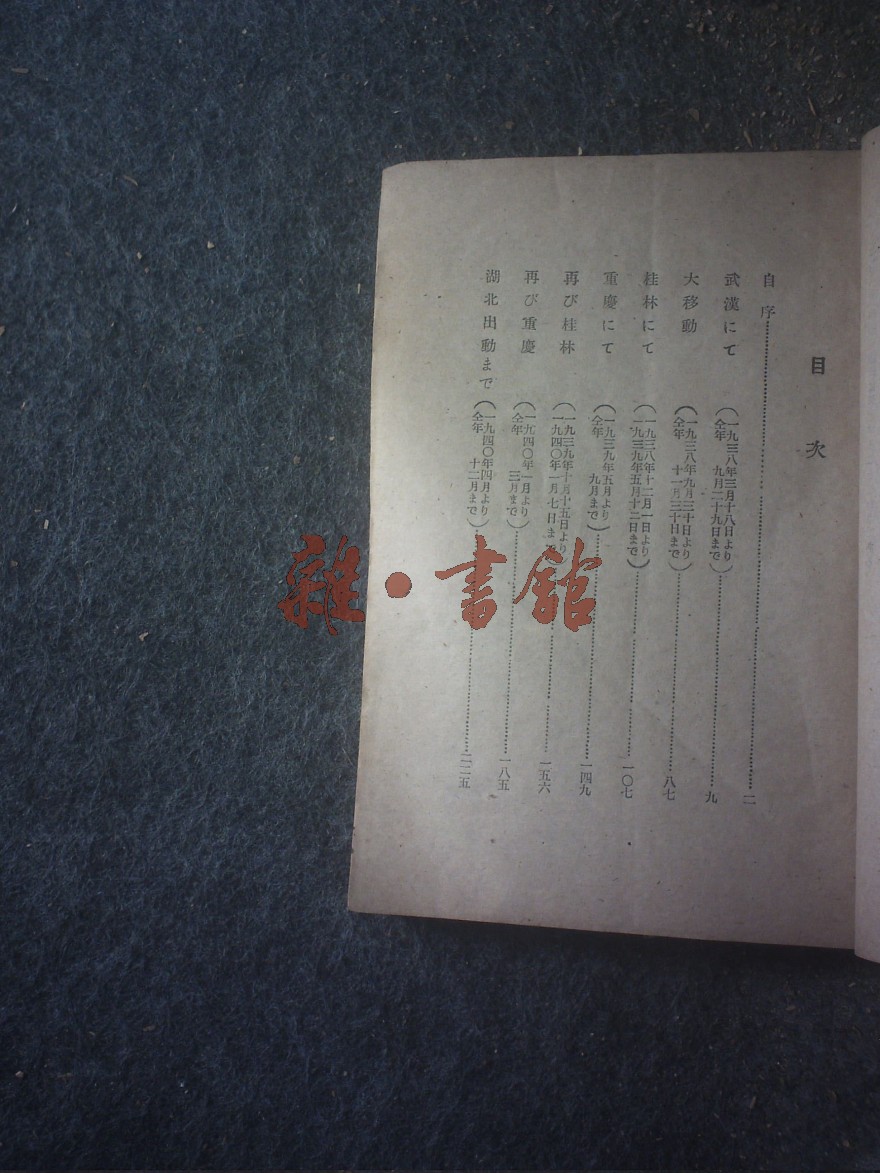 目次
自序……二
武漢にて(一九三八年三月十八日より
仝年 九月二十九日まで)……九
大移動(一九三八年九月三十日より
仝年 十一月三十日まで)……八七
桂林にて(一九三八年十二月一日より
一九三九年五月十二日まで)……一〇七
重慶にて(一九三九年五月より
仝年 九月まで)……一四九
再び桂林(一九三九年十月十五日より
一九四〇年一月七日まで……一五六
再び重慶(一九四〇年一月より
仝年 三月まで)……一八五
湖北出動まで(一九四〇年四月より
仝年 十二月まで)……二二五
雜·書館